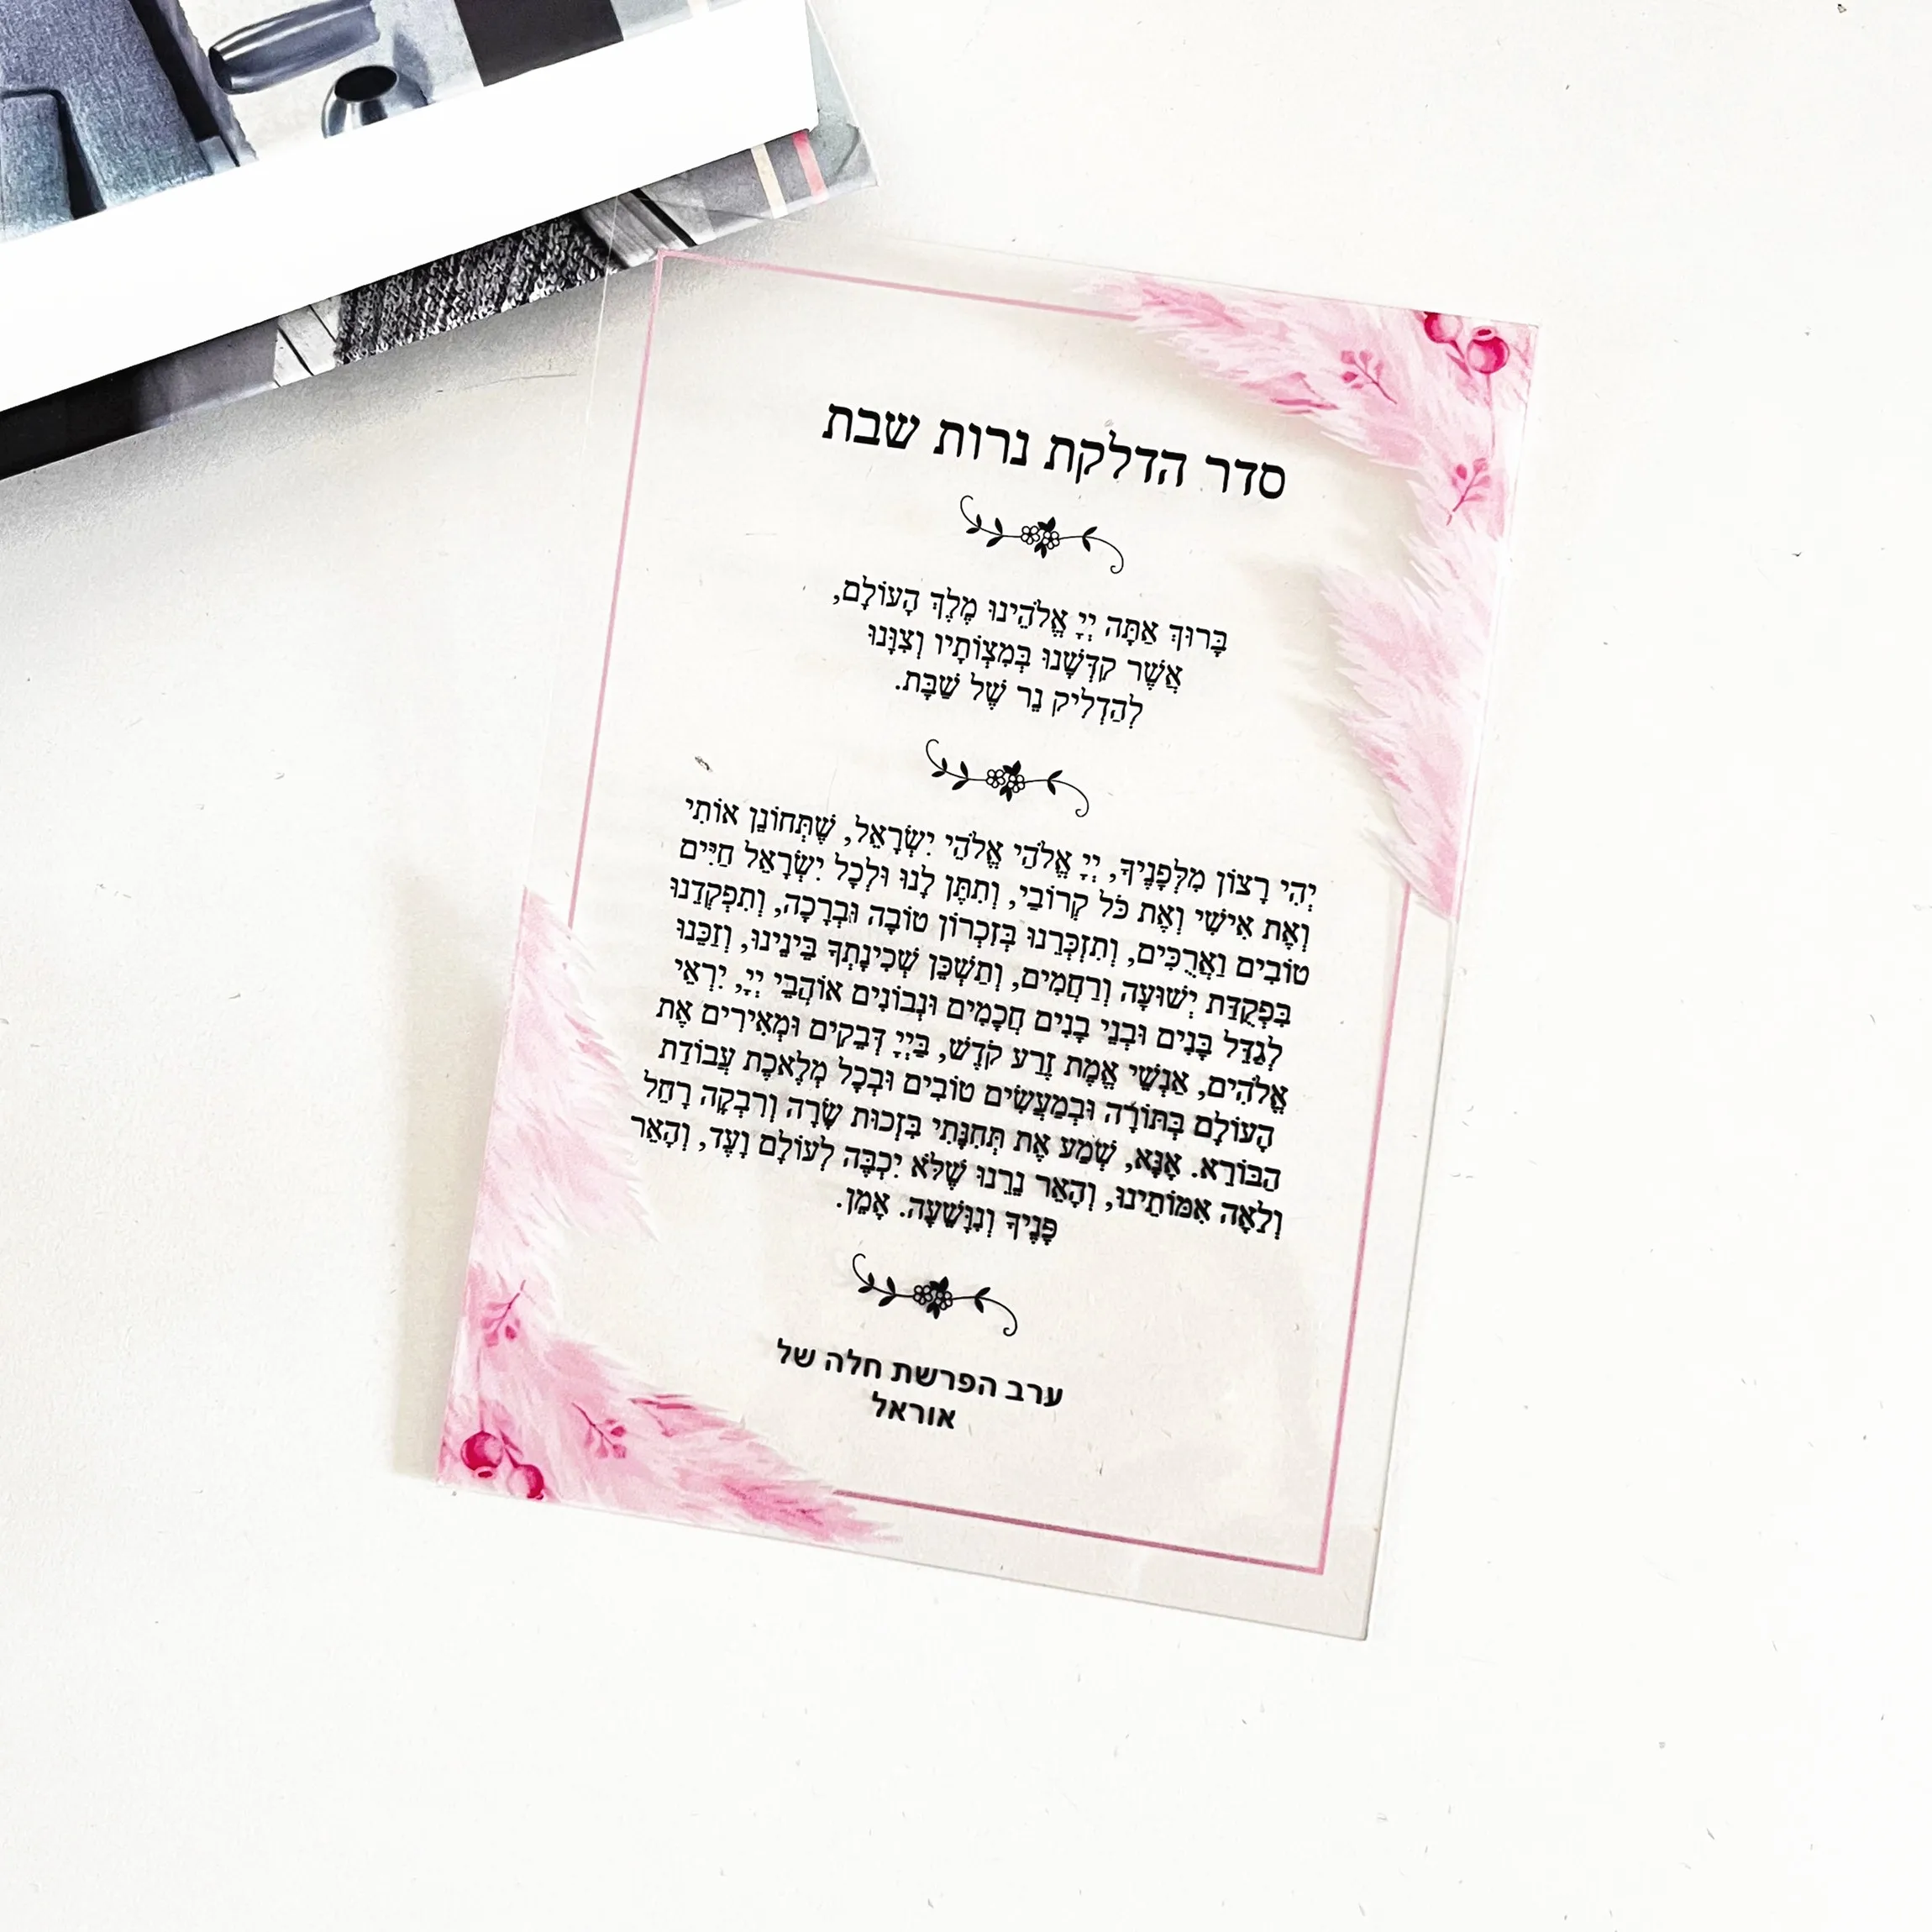 סדר הדלקת נרות שבת
בָּרוּךְ אַתָּה יְיָ אֱלֹהֵינוּ מֶלֶךְ הָעוֹלָם,
אֲשֶׁר קִדְּשָׁנוּ בְּמִצְוֹתָיו וְצִוָּנוּ
לְהַדְלִיק נֵר שֶׁל שַׁבָּת.
יְהִי רָצוֹן מִלְּפָנֶיךָ, יְיָ אֱלֹהַי אֱלֹהֵי יִשְׂרָאֵל, שֶׁתְּחוֹנֵן אוֹתִי
וְאֶת אִישִׁי וְאֶת כֹּל קְרוֹבַי, וְתִתֶּן לָנוּ וּלְכָל יִשְׂרָאֵל חַיִּים
טוֹבִים וַאֲרֻכִּים, וְתִזְכְּרֵנוּ בְּזִכְרוֹן טוֹבָה וּבְרָכָה, וְתִפְקְדֵנוּ
בִּפְקֻדַּת יְשׁוּעָה וְרַחֲמִים, וְתַשְׁכֵּן שְׁכִינָתְךָ בֵּינֵינוּ, וְזַכֵּנוּ
לְגַדֵּל בָּנִים וּבְנֵי בָנִים חֲכָמִים וּנְבוֹנִים אוֹהֲבֵי יְיָ, יִרְאֵי
אֱלֹהִים, אַנְשֵׁי אֱמֶת זֶרַע קֹדֶשׁ, בַּיְיָ דְּבֵקִים וּמְאִירִים אֶת
הָעוֹלָם בְּתוֹרָה וּבְמַעֲשִׂים טוֹבִים וּבְכָל מְלֶאכֶת עֲבוֹדַת
הַבּוֹרֵא. אָנָּא, שְׁמַע אֶת תְּחִנָּתִי בִּזְכוּת שָׂרָה וְרִבְקָה רָחֵל
וְלֵאָה אִמּוֹתֵינוּ, וְהָאֵר נֵרֵנוּ שֶׁלֹּא יִכְבֶּה לְעוֹלָם וָעֶד, וְהָאֵר
פָּנֶיךָ וְנִוָּשֵׁעָה. אָמֵן.
ערב הפרשת חלה של
אוראל